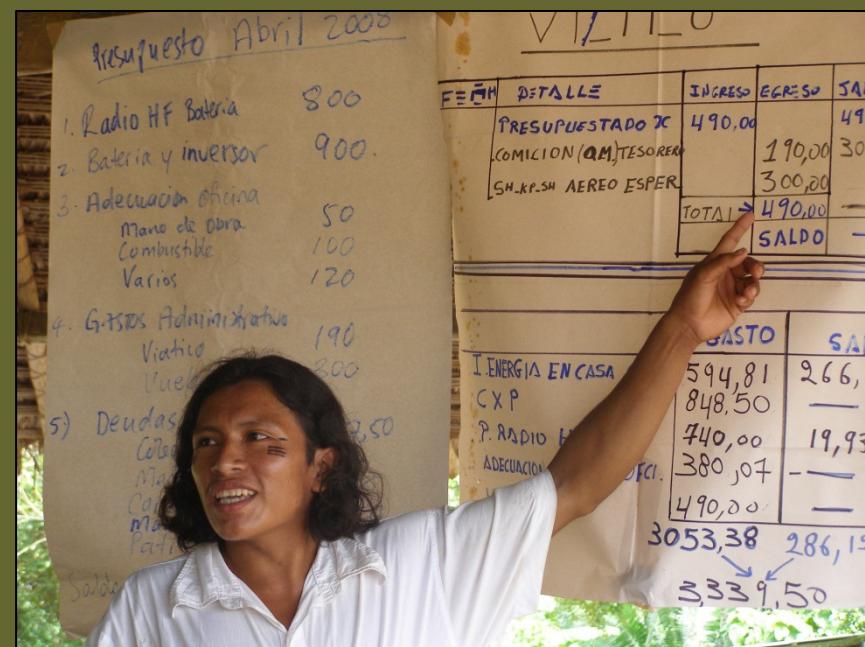 Presupuesto Abril 2008
1. Radio HF Bateria 800
2. Bateria y inversor 900.
3. Adecuación oficina
Mano de obra 50
Combustible 100
Varios 120
4. Gastos Administrativo
Viatico 190
Vuel 300
5) Deudas ,50
Saldo
VIATICO
FECH DETALLE INGRESO EGRESO SAL
PRESUPUESTADO X 490,00 49
COMICION (QM) TESORERO 190,00 30
SH_KP_SH AEREO ESPER 300,00
TOTAL → 490,00 —
SALDO —
GASTO SAL
I. ENERGIA EN CASA 594,81 266,
CXP 848,50 —
P. RADIO H 740,00 19,93
ADECUACION OFCI. 380,07 —
490,00 —
3053,38 286,1
3,339,50